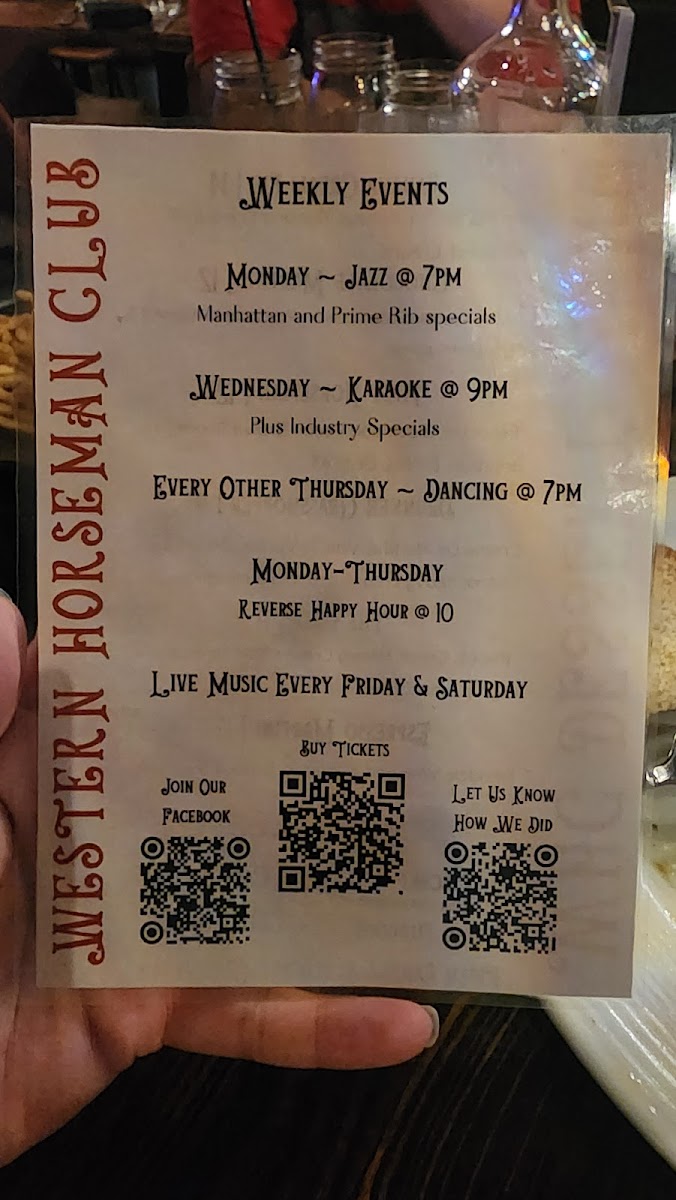 WESTERN HORSEMAN CLUB
WEEKLY EVENTS
MONDAY ~ JAZZ @ 7PM
Manhattan and Prime Rib specials
WEDNESDAY ~ KARAOKE @ 9PM
Plus Industry Specials
EVERY OTHER THURSDAY ~ DANCING @ 7PM
MONDAY-THURSDAY
REVERSE HAPPY HOUR @ 10
LIVE MUSIC EVERY FRIDAY & SATURDAY
BUY TICKETS
JOIN OUR
FACEBOOK
LET US KNOW
HOW WE DID